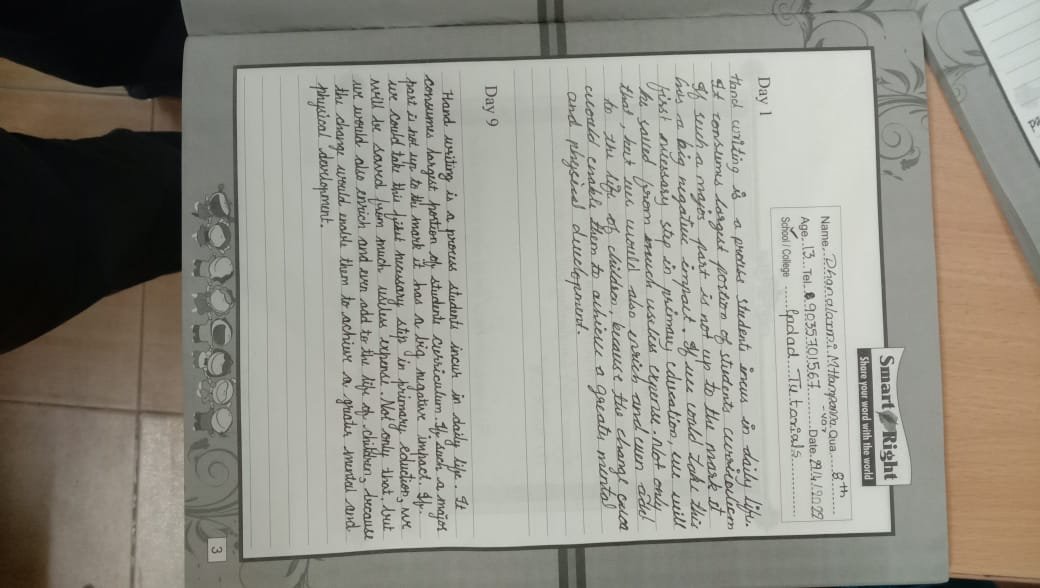 Smart Right
Share your word with the world
Name. Dhanalaxmi. M Hampanna Qua. 8th
Age. 13 Tel. 9035701567 Date. 21/4/2022
School / College Gadad Tutorials
Day 1
Hand writing is a process students incur in daily life.
It consums largest portion of students curriculum
If such a major part is not up to the mark it
has a big negative impact. If we could take this
first nicessary step in primary education, we will
be saved from much useless expense. Not only
that, but we would also enrich and even add
to the life of children, because the change
would enable them to achieve a greater mental
and physical development.
Day 9
Hand writing is a process students incur in daily life. It
consumes largest portion of students curriculum. If such a major
part is not up to the mark it has a big negative impact. If
we could take this first necessary step in primary eduction, we
will be saved from much useless expense. Not only that, but
we would also enrich and even add to the life of children, because
the change would enable them to achieve a greater mental and
physical development.
3